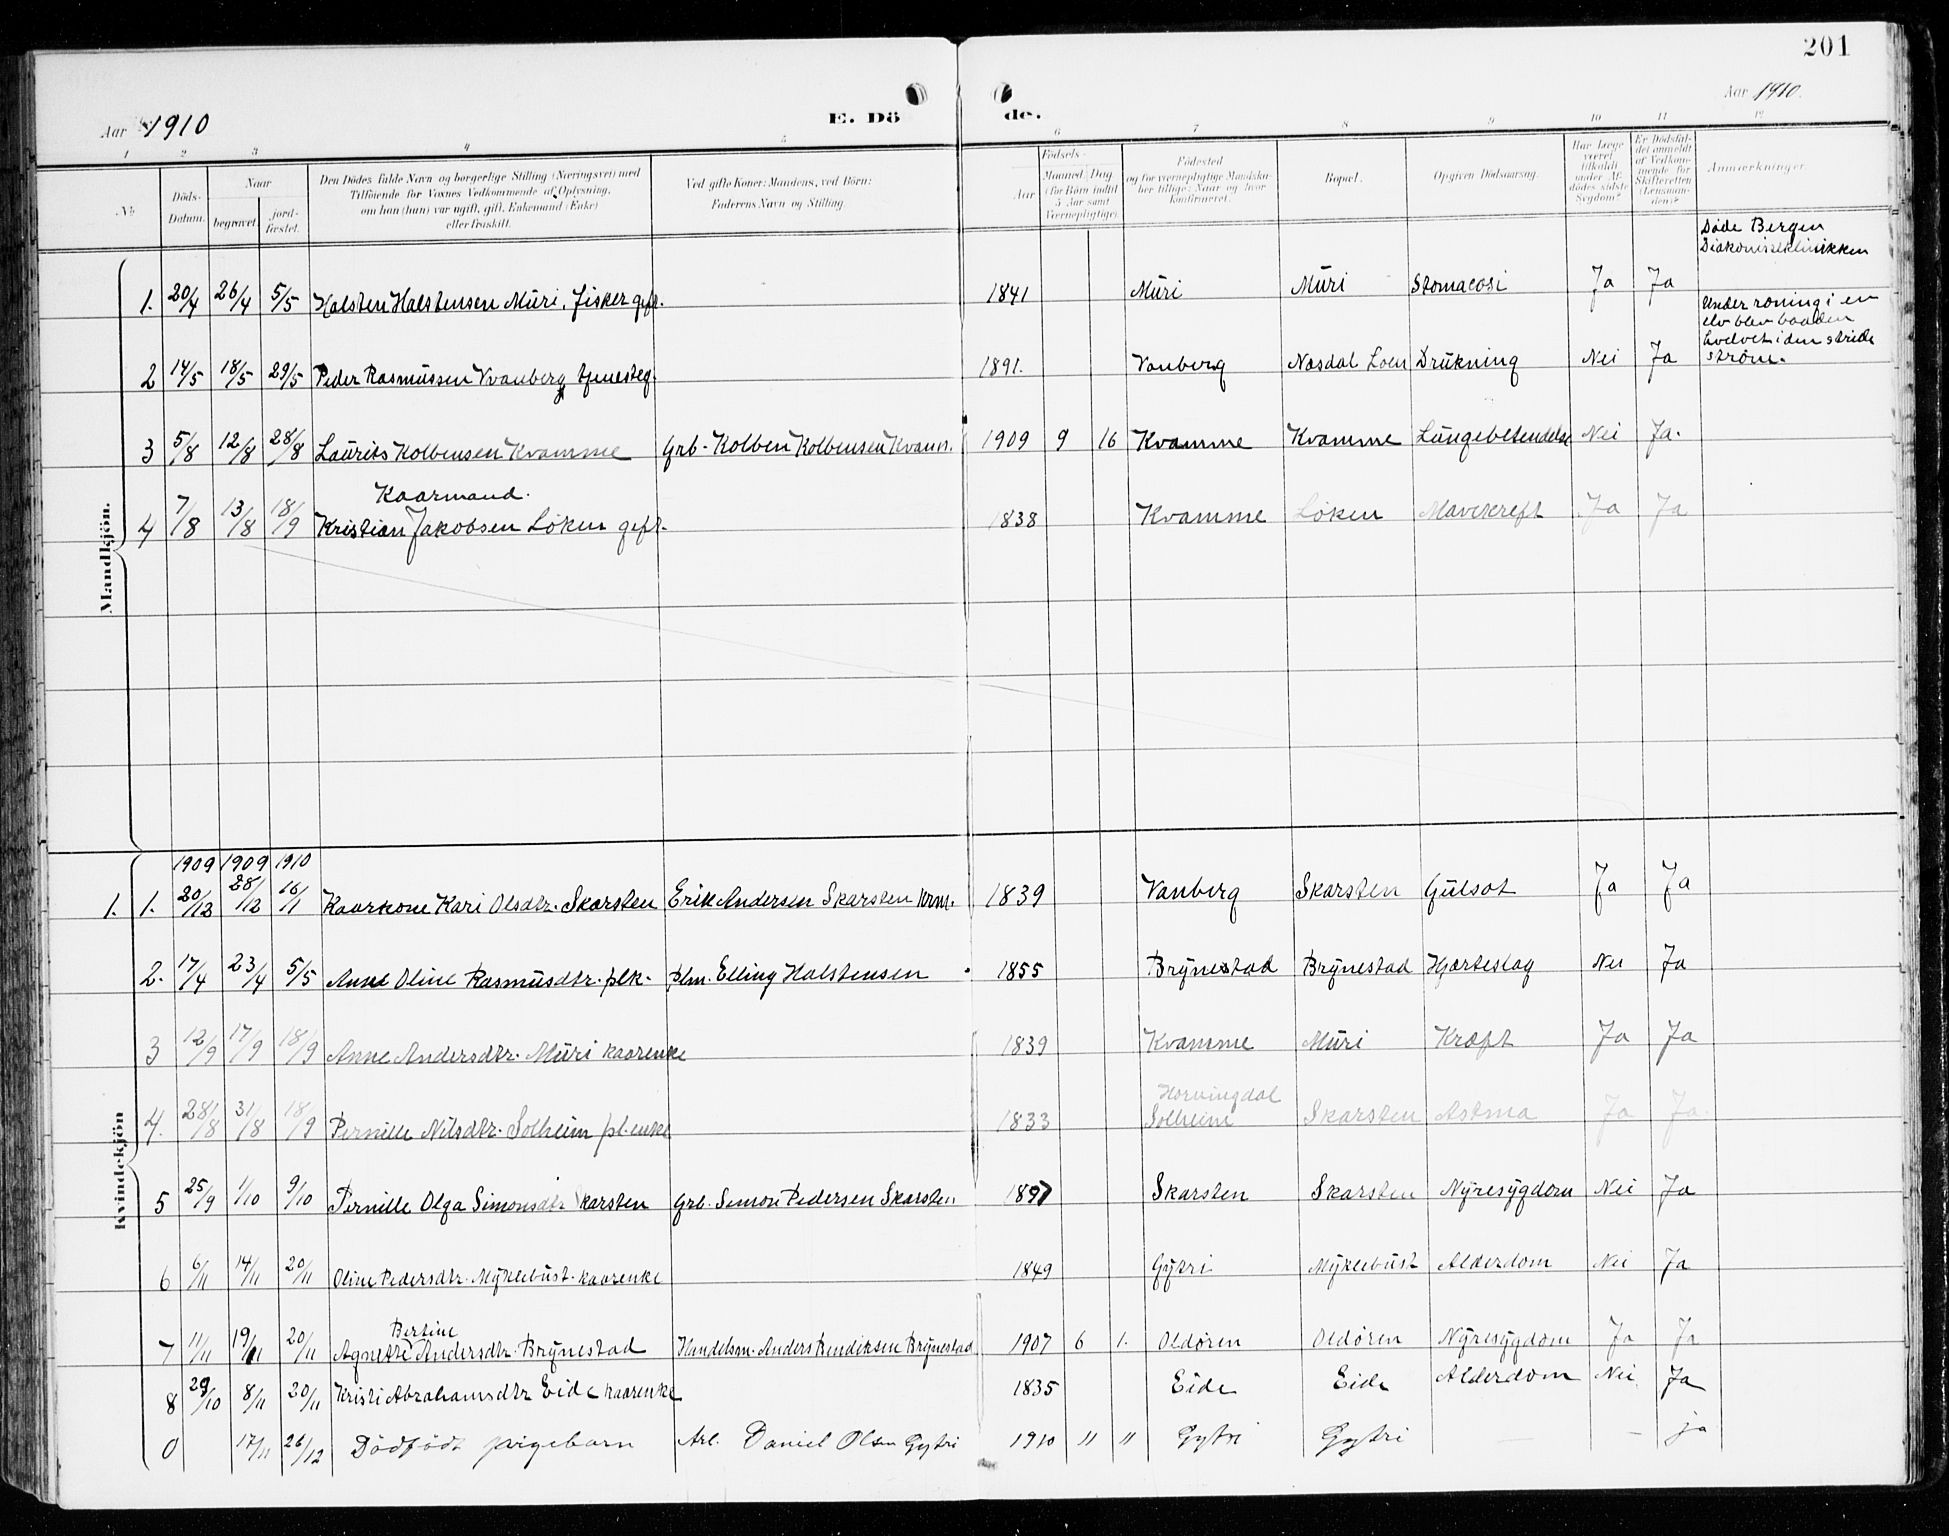 201
Aar 1910
E. Döde.
Aar 1910.
1 2 3 4 5 6 7 8 9 10 11 12
No
Döds-Datum.
Naar
begravet.
jord-fæstet.
Den Dödes fulde Navn og borgerlige Stilling (Næringsvei) med
Tilföiende for Voxnes Vedkommende af Oplysning,
om han (hun) var ugift, gift, Enkemand (Enke)
eller fraskilt.
Ved gifte Koner: Mandens, ved Börn:
Faderens Navn og Stilling.
Födsels-
Aar
Maaned Dag
(for Börn indtil
5 Aar samt
Værnepligtige).
Födested
og for værnepligtige Mandska-
ber tillige: Naar og hvor
konfirmeret.
Bopæl.
Opgiven Dödsaarsag.
Har Læge
været
tilkaldt
under Af-
dödes sidste
Sygdom?
Er Dödsfal-
det anmeldt
af Vedkom-
mende for
Skifteretten
(Lensman-
den)?
Anmærkninger.
Mandkjön.
Døde Bergen
Diakonisseklinikken
1. 20/4 26/4 5/5 Halsten Halstensen Muri, fisker gift. 1841 Muri Muri Stomacosi Ja Ja
Under roning i en
elv blev baaden
hvelvet i den stride
strøm.
2 14/5 18/5 29/5 Peder Rasmussen Vanberg tjenesteg. 1891. Vanberg Nesdal Loen Drukning Nei Ja
3 5/8 12/8 28/8 Laurits Kolbensen Kvamme Grb. Kolben Kolbensen Kvam. 1909 9 16 Kvamme Kvamme Lungebetendelse Nei Ja.
Kaarmand.
4 7/8 13/8 18/9 Kristian Jakobsen Løken gift. 1838 Kvamme Løken Mavekreft Ja Ja
Kvindekjön
1909 1909 1910
1. 1. 20/12 28/12 16/1 Kaarkone Kari Olsdtr. Skarsten Erik Andersen Skarsten krm. 1839 Vanberg Skarsten Gulsot Ja Ja
2. 17/4 23/4 5/5 Anne Oline Rasmusdtr. plk. plm. Elling Halstensen 1855 Brynestad Brynestad Hjerteslag Nei Ja
3 12/9 17/9 18/9 Anne Andersdtr. Muri kaarenke 1839 Kvamme Muri Kræft Ja Ja
Horningdal
4. 28/8 31/8 18/9 Pernille Nilsdtr. Solheim pl.enke 1833 Solheim Skarsten Astma Ja Ja
5 25/9 1/10 9/10 Pernille Olga Simonsdtr Skarsten Grb. Simon Pedersen Skarsten 1897 Skarsten Skarsten Nyresygdom Nei Ja
6 6/11 14/11 20/11 Oline Pedersdtr. Myklebust. kaarenke 1849 Gytri Myklebust Alderdom Nei Ja
Bertine
7 11/11 19/11 20/11 Agnette Andersdtr. Brynestad Handelsm. Anders Bendiksen Brynestad 1907 6 1. Oldøren Oldøren Nyresygdom Ja Ja
8 29/10 8/11 20/11 Kristi Abrahamsdtr Eide kaarenke 1835 Eide Eide Alderdom Nei Ja
0 17/11 26/12 Dödfödt pigebarn Arb. Daniel Olsen Gytri 1910 " " Gytri Gytri — – ja